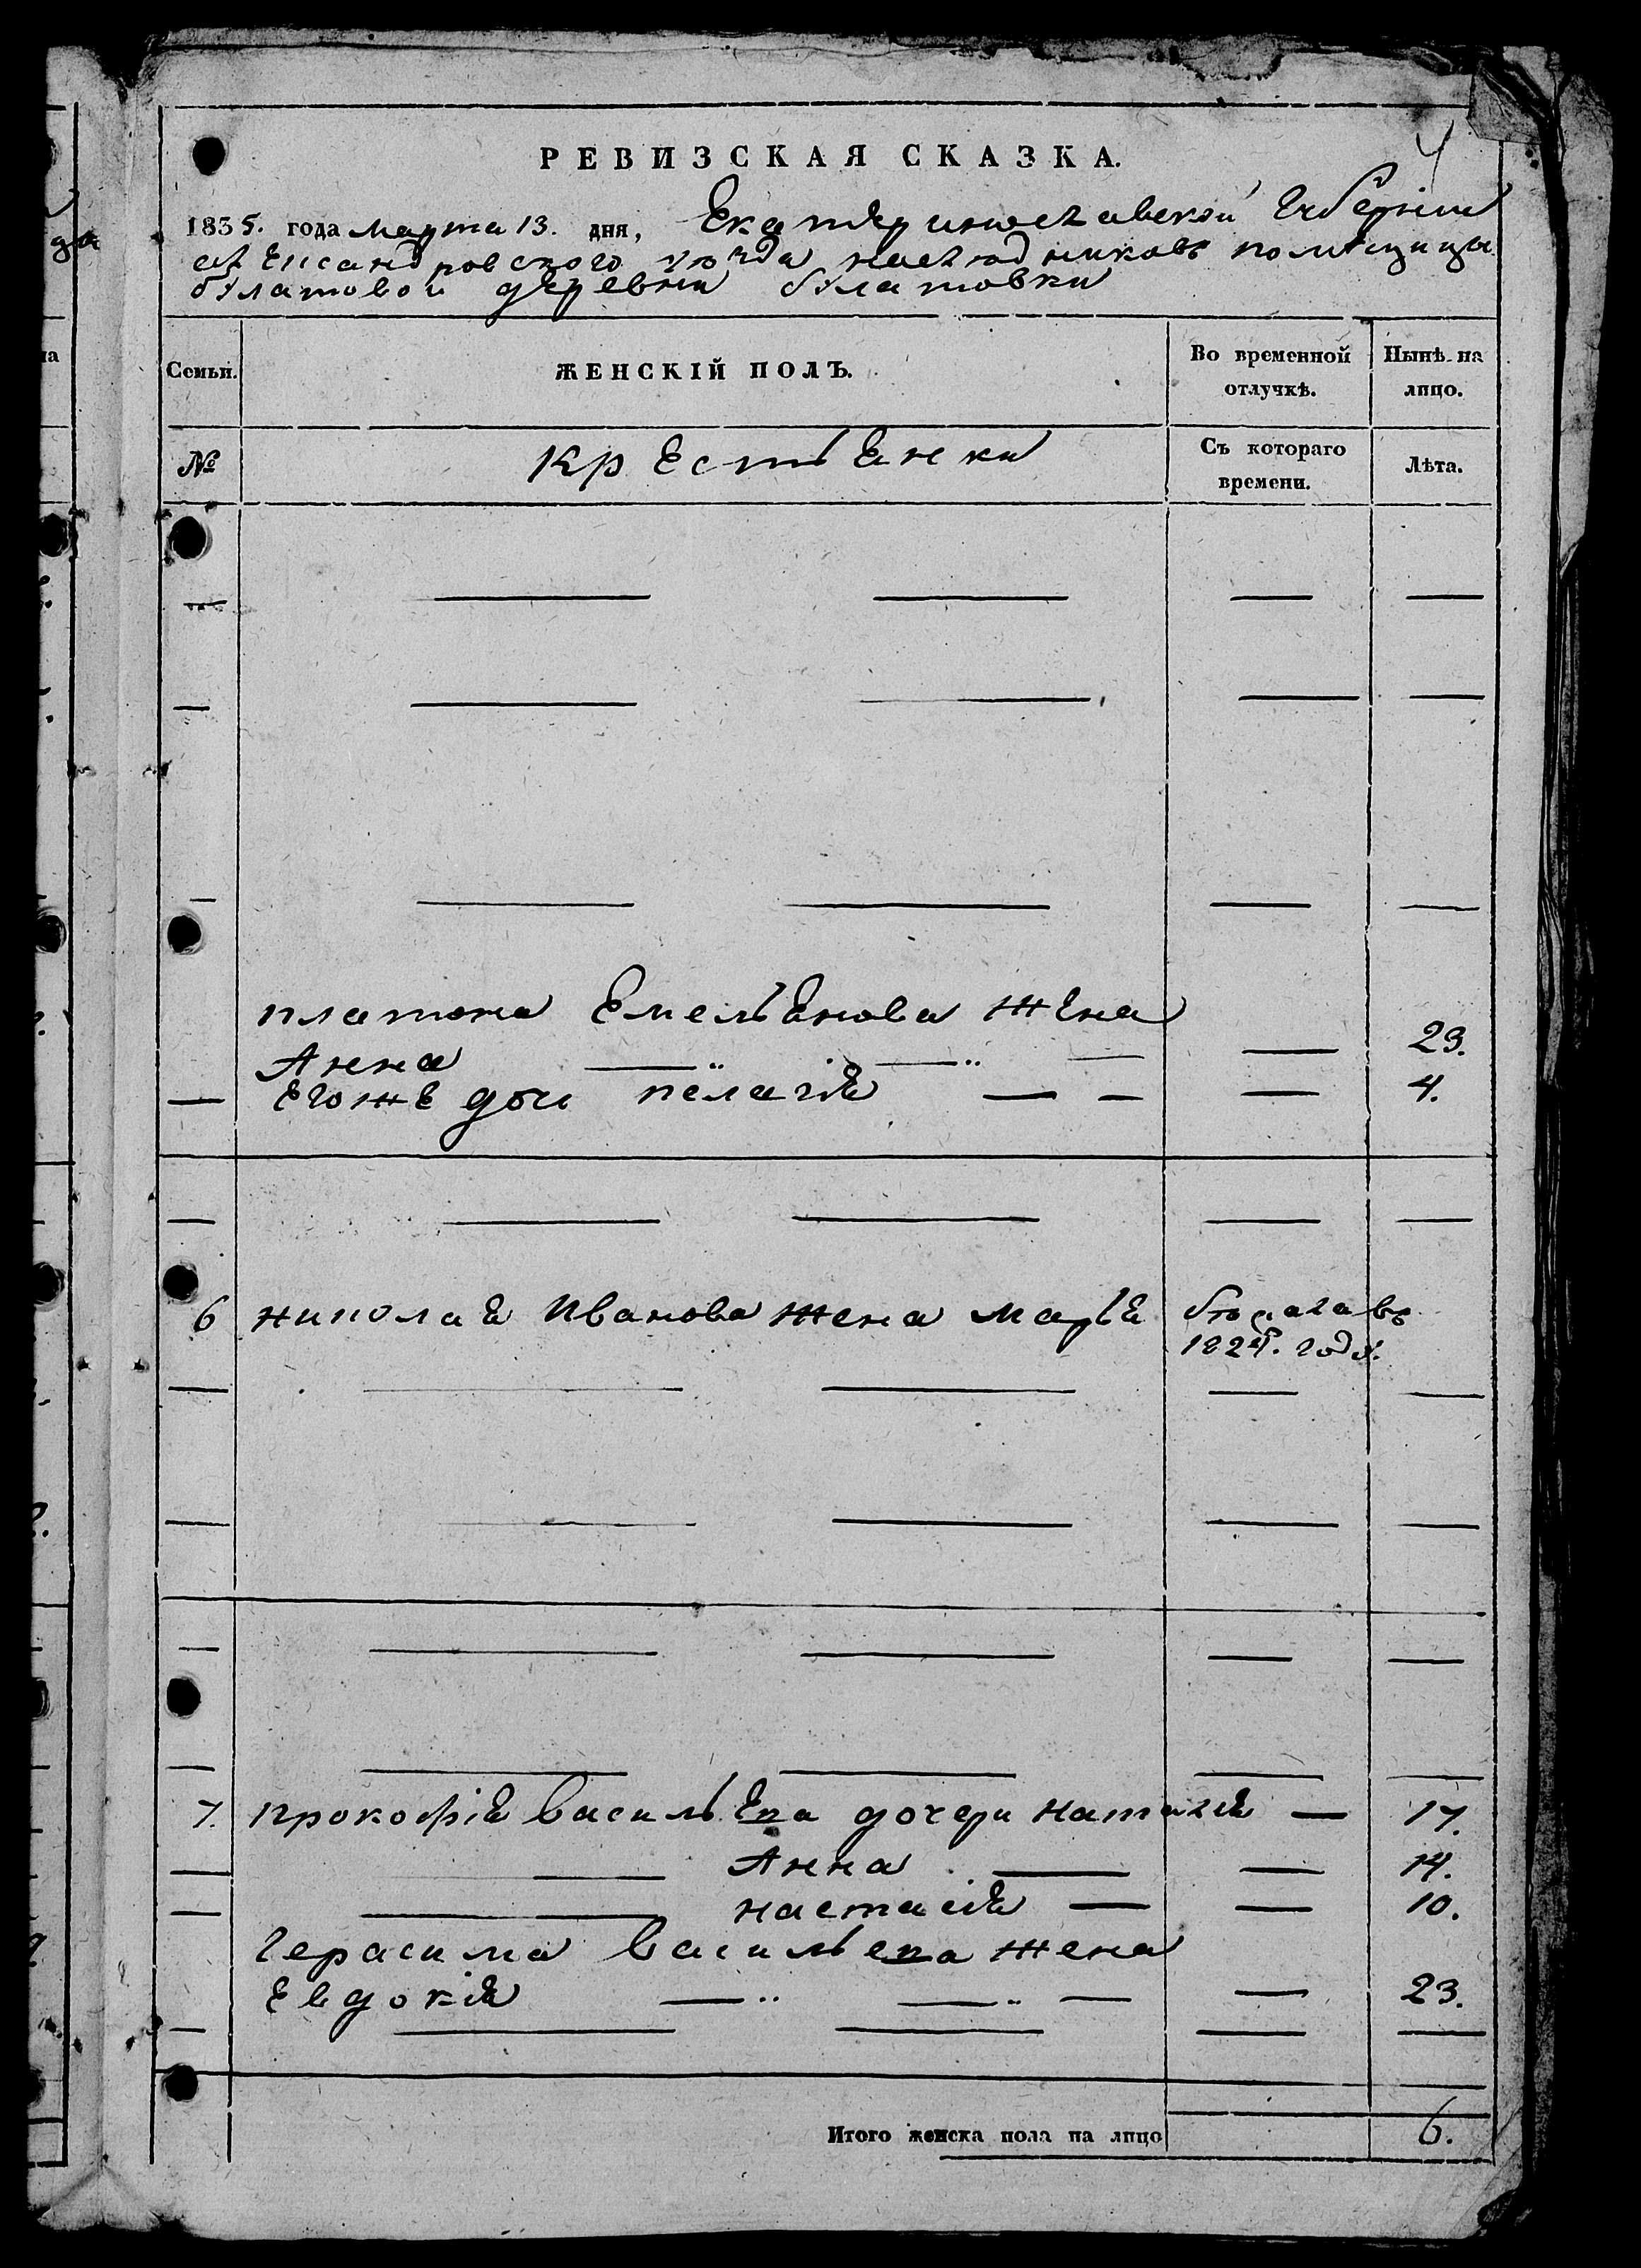 4
РЕВИЗСКАЯ СКАЗКА.
1835. года марта 13. дня, Екатеринославской Губернии
александровского уезда наследниковъ помещицы
булатовой деревни булатовки
Семьи. ЖЕНСКІЙ ПОЛЪ. Во временной отлучкѣ. Нынѣ на лицо.
№ крестьенки Съ котораго времени. Лѣта.
платона Емельянова жена
Анна — — — — 23.
— егоже дочь пелагия — — — 4.
6 николая Иванова жена марья
182 году.
7. прокофія васильева дочери наталия — 17.
— — Анна — — 14.
— — настасия — — 10.
герасима васильева жена
Евдокия — — — — 23.
Итого женска пола на лицо 6.